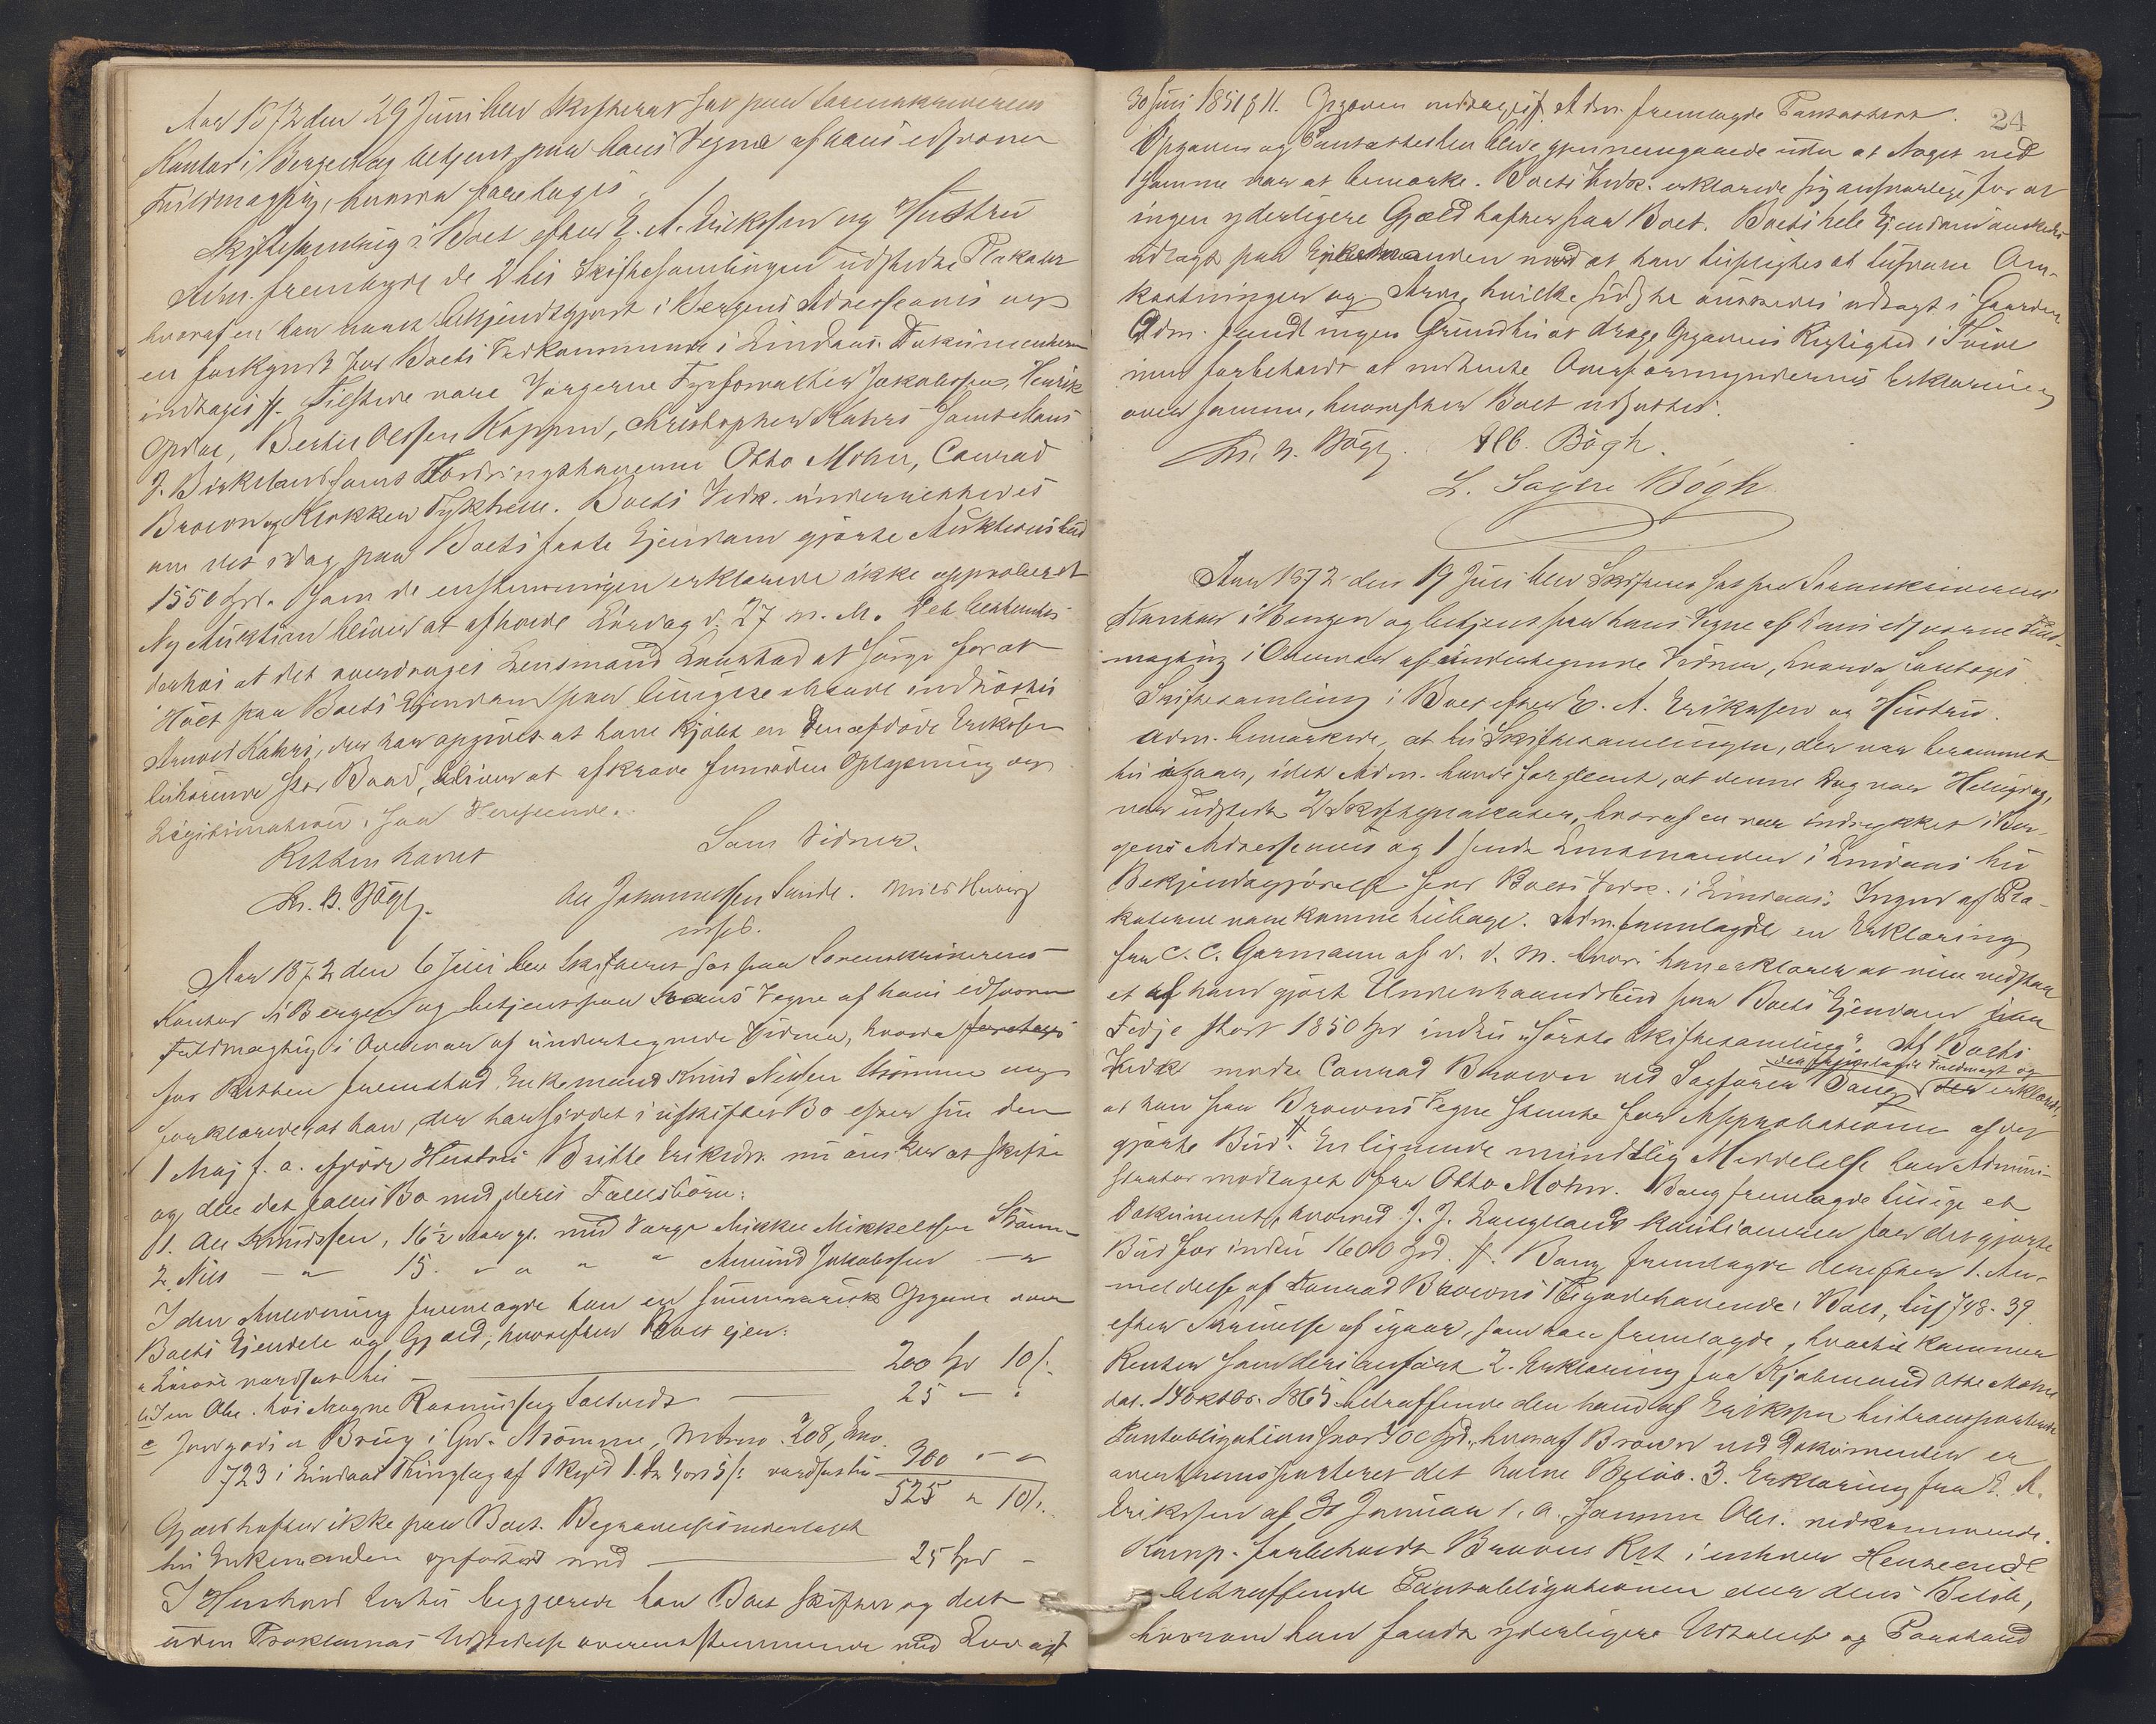 Aar 1872 den 29 Juni blev Skifteret sat paa Sorenskriverens
Kontor i Bergen og betjent paa hans Vegne af hans edsvorne
Fuldmægtig, hvorda foretoges
Skiftesamling i Boet efter E. A. Eriksen og Hustru
Adm. fremlagde de 2 til Skiftesamlingen udstedte Plakater
hvoraf en har været bekjendtgjort i Bergens Adresseavis og
en forkyndt for Boets Vedkommende i Lindaas. Dokumenterne
indtages #. Tilstede vare Vergerne Jakobsen, Henrik
Opdal, Bertil Olssen, Christopher Kahrs samt Mons
J. Birkeland samt Fordringshaverne Otto Mohn, Conrad
Brown og Klokker. Boets Vedk. underrettedes
om det idag paa Boets faste Ejendom gjorte Auktionsbud
1550 Spd. som de enstemmigen erklærede ikke approberet
Ny Auktion bliver at afholde Lördag d. 27 n. M. Det bestemtes
derhos at det overdrages Lensmand at sörge for at
Höet paa Boets Ejendom paa billigste Maade indhöstes
Arnold Kahrs, der har opgivet at have kjöbt en den afdöde Eriksen
tilhörende stor Baad, bliver at afkræve fornöden Oplysning og
Legitimation i saa Henseende.
Retten hævet
Som Vidner.
Chr. B. Bögh.
Ole Johannessen Sunde. Nils
Aar 1872 den 6 Juli blev Skifteret sat paa Sorenskriverens
Kontor i Bergen og betjent paa hans Vegne af hans edsvorne
Fuldmægtig i Overvær af undertegnede Vidner, hvorda foretoges
for Retten fremstod Enkemand Knud Nilssen Strömme og
forklarede at han, der har siddet i uskiftet Bo efter sin den
1 Maj f. a. afgjöde Hustru Brithe Eriksdtr. nu önsker at skifte
og dele det fælles Bo med deres Fællesbörn:
1. Ole Knudssen, 16½ Aar gl. med Verge Mikkel Mikkelssen Ström-
2. Nils — " 15. " " " " Amund Jakobsen — "
I den Anledning fremlagde han en summarisk Opgave over
Boets Ejendele og Gjæld, hvorefter Boet ejer:
a Lösöre værdsat til — 200 Spd 10 s.
b I en Obl. hos Mogne Rasmussen — 25 — "
c Jordgods en Brug i Grd. Strömme, Matrno. 208, Lno.
723 i Lindaas Thinglag af Skyld 1 Dr 4 ort 5 s: værdsat til 300 " "
525 " 10 s.
Gjæld hefter ikke paa Boet. Begravelsesudlæget
til Enkemanden opfört med — 25 Spd —
I Henhold hertil begjærede han Boet skiftet og delt
uden Proklamas Udstedelse overensstemmende med Lov af
24
30 Juli 1851 § 11. Opgaven indtages #. Adm. fremlagde Pantattest.
Opgaven og Pantattesten blive gjennemgaaede uden at Noget ved
samme var at bemærke. Boets Vedk. erklærede sig ansvarlige for at
ingen yderligere Gjæld hefter paa Boet. Boets hele Ejendom önskedes
udlagt paa Enkemanden mod at han tilpligtes at tilsvare Om-
kostninger og Arv, hvilke sidste önskedes udlagt i Gaarden
Adm. fandt ingen Grund til at drage Opgavens Rigtighed i Tvivl
men forbeholdt at indhente Overformynderiets Erklæring
over samme, hvorefter Boet udsattes.
Chr. B. Bögh. Alb. Bögh.
L. Sagen Bögh
Aar 1872 den 19 Juli blev Skifteret sat paa Sorenskriverens
Kontor i Bergen og betjent paa hans Vegne af hans edsvorne Fuld-
mægtig i Overvær af undertegnede Vidner, hvorda foretoges
Skiftesamling i Boet efter E. A. Eriksen og Hustru.
Adm. bemærkede, at til Skiftesamlingen, der var berammet
til igaar, idet Adm. havde forglemt, at denne Dag var Helligdag,
var udstedt 2 Skifteplakater, hvoraf en var indrykket i Ber-
gens Adresseavis og 1 sendt Lensmanden i Lindaas til
Bekjendtgjörelse for Boets Vedk. i Lindaas; Ingen af Pla-
katerne vare komne tilbage. Adm. fremlagde en Erklæring
fra C. C. Garmann af d. d. M. hvori han erklærer at ville vedstaa
et af ham gjort Underhaandsbud paa Boets Ejendom paa
Fedje stort 1850 Spd indtil „förste Skiftesamling". Af Boets
Vedk mödte Conrad Brown ved Sagförer Bang der fremlagde Fuldmagt og der erklærede
at han paa Browns Vegne stemte for Approbationen af det
gjorte Bud. En lignende mundtlig Meddelelse havde Admini-
strator modtaget fra Otto Mohn. Bang fremlagde tillige et
Dokument, hvorved J. J. Langeland kautionerer for det gjorte
Bud for indtil 1600 Spd. #. Bang fremlagde derefter 1. An-
meldelse af Conrad Browns Tilgodehavende i Boet, 748. 39
efter Skrivelse af igaar, som han fremlagde, hvortil kommer
Renter som deri anfört 2. Erklæring fra Kjöbmand Otto Mohn
dat. 14 Oktbr. 1865 betræffende den ham af Eriksen transporterede
Pantobligation stor 400 Spd., hvoraf Brown ved Dokumentet er
overtransporteret det halve Belöb. 3. Erklæring fra E. A.
Eriksen af 30 Januar s. a., samme Obl. vedkommende.
Komp. forbeholdt Browns Ret i enhver Henseende
betræffende Pantobligationen eller dens Belöb,
hvorom han fandt yderligere Udtalelse og Paastand